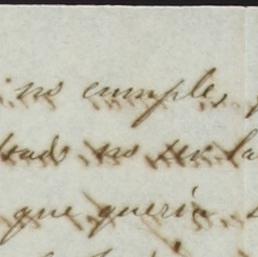 no cumple,
no ser la
que queria